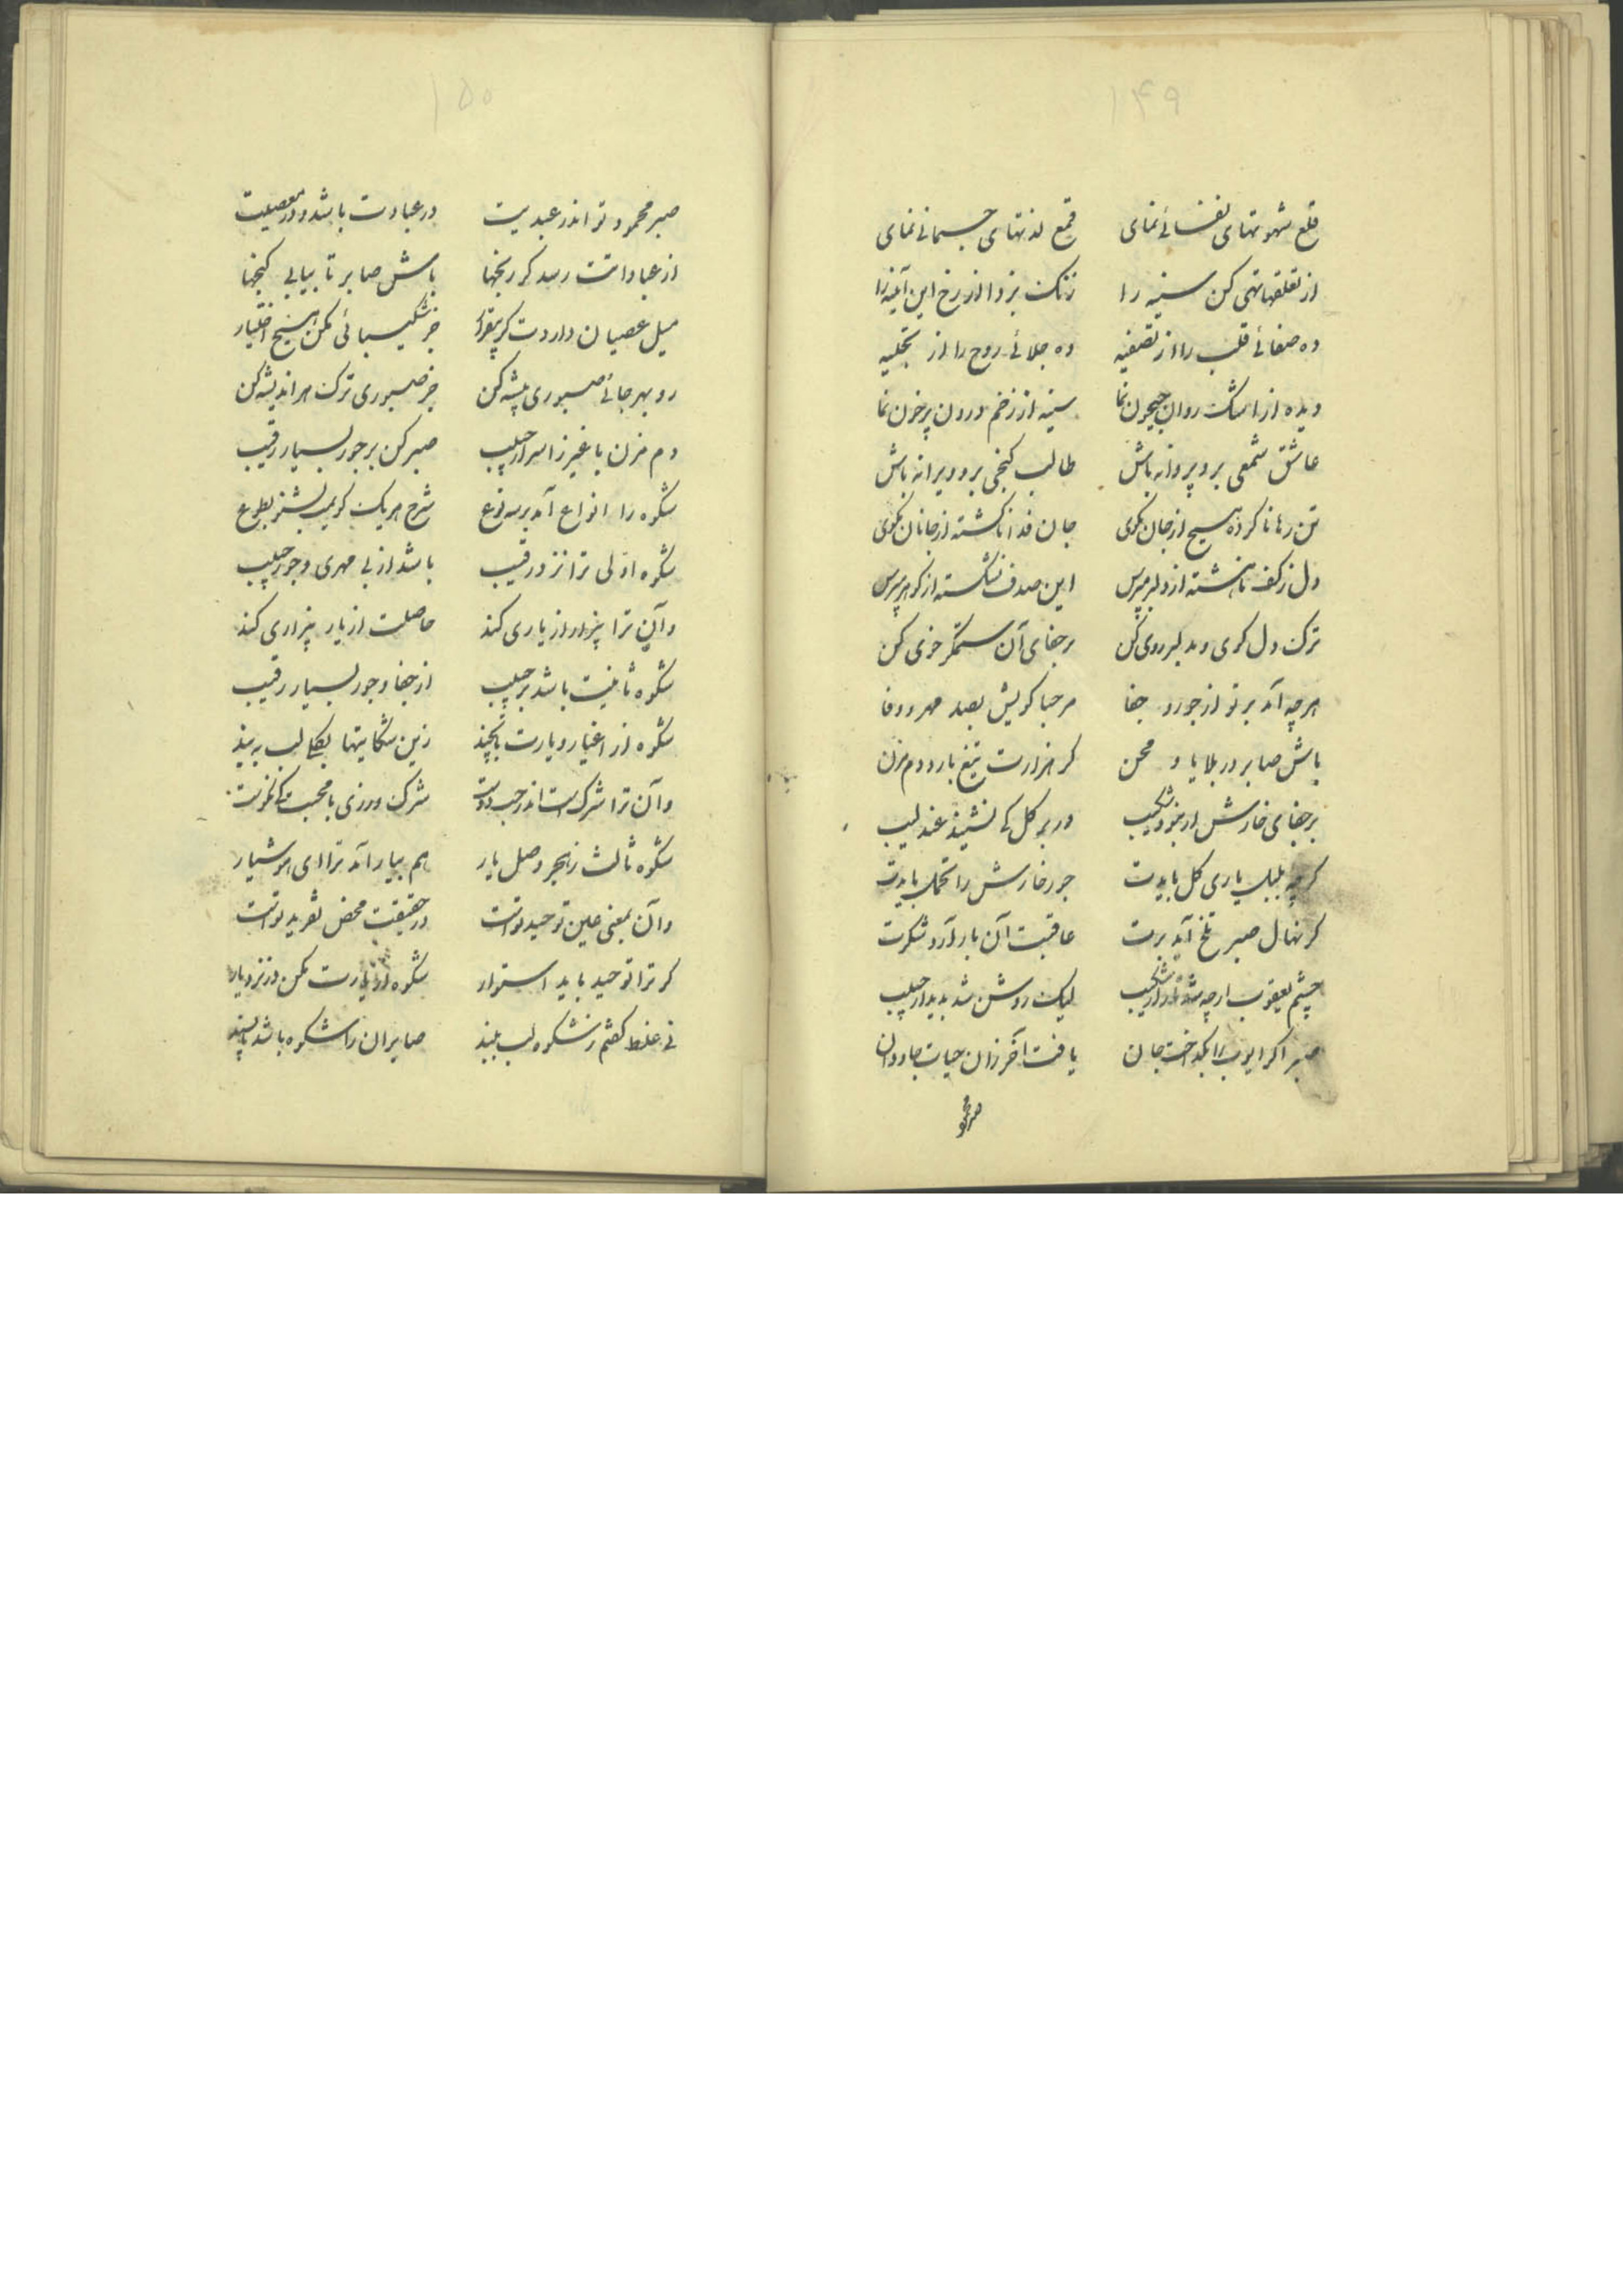 ۱۴۹
قلع شهوتهای نفسانی نمای قمع لذتهای جسمانی نمای
از تعلقها تهی کن سینه را زنک بزدا از رخ این آئینه را
ده صفائی قلب را از تصفیه ده جلائی روح را از تجلیه
دیده از اشک روان جیحون نما سینه از زخم درون پرخون نما
عاشق شمعی برو پروانه باش طالب کنجی برو ویرانه باش
تن رها ناکرده هیچ از جان مکوی جان فدا ناکشته از جانان مکوی
دل ز کف ناهشته از دلبر مپرس این صدف نشکسته از کوهر مپرس
ترک دل کوی و بدلبر روی کن بر جفای آن ستمکر خوی کن
هرچه آمد بر تو از جور و جفا مرحبا کویش بصد مهر و وفا
باش صابر در بلایا و محن کر هزارت تیغ بارد دم مزن
بر جفای خارش ار نبود شکیب در بر کل کی نشیند عندلیب
کرچه بلبل یاری کل بایدت جور خارش را تحمل بایدت
کر نهال صبر تلخ آید برت عاقبت آن بار آرد شکرت
چشم یعقوب ارچه شد از شکیب لیک روشن شد بدیدار حبیب
صبر اکر ایوب را بکداخت جان یافت آخر زان حیات جاودان
صبر محمود
۱۵۰
صبر محمود تو اندر عبدیت در عبادت باشد و در معصیت
از عباداتت رسد کر رنجها باش صابر تا بیابی کنجها
میل عصیان داردت کر بیقرار جز شکیبائی مکن هیچ اختیار
رو بهر جائی صبوری پیشه کن جز صبوری ترک هر اندیشه کن
دم مزن با غیر ز اسرار حبیب صبر کن بر جور بسیار رقیب
شکوه را انواع آمد بر سه نوع شرح هر یک کویمت بشنو بطوع
شکوه اولی ترا نزد رقیب باشد از بی مهری و جور حبیب
وآن ترا بیزار از یاری کند حاصلت از یار بیزاری کند
شکوه ثانیت باشد بر حبیب از جفا و جور بسیار رقیب
شکوه از اغیار و یارت تا بچند زین شکایتها بکلی لب ببند
وآن ترا شرک است اندر حب دوست شرک ورزی با محبت کی نکوست
شکوه ثالث ز هجر و وصل یار هم بیار آمد ترا ای هوشیار
وآن بمعنی عین توحید تو است در حقیقت محض تفرید تو است
کر ترا توحید باید استوار شکوه از یارت مکن در نزد یار
نی غلط کفتم ز شکوه لب ببند صابران را شکوه باشد ناپسند